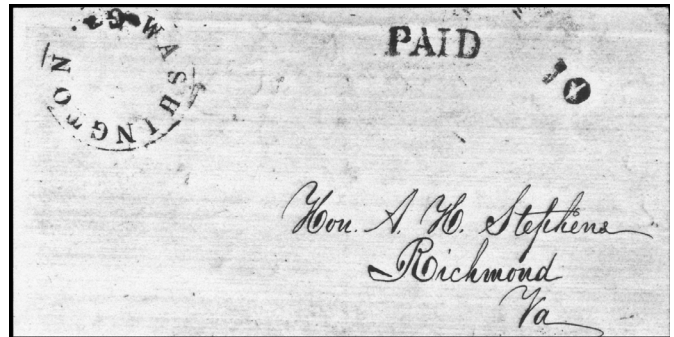 WASHINGTON Ga.
PAID
10
Hon. A. H. Stephens
Richmond
Va